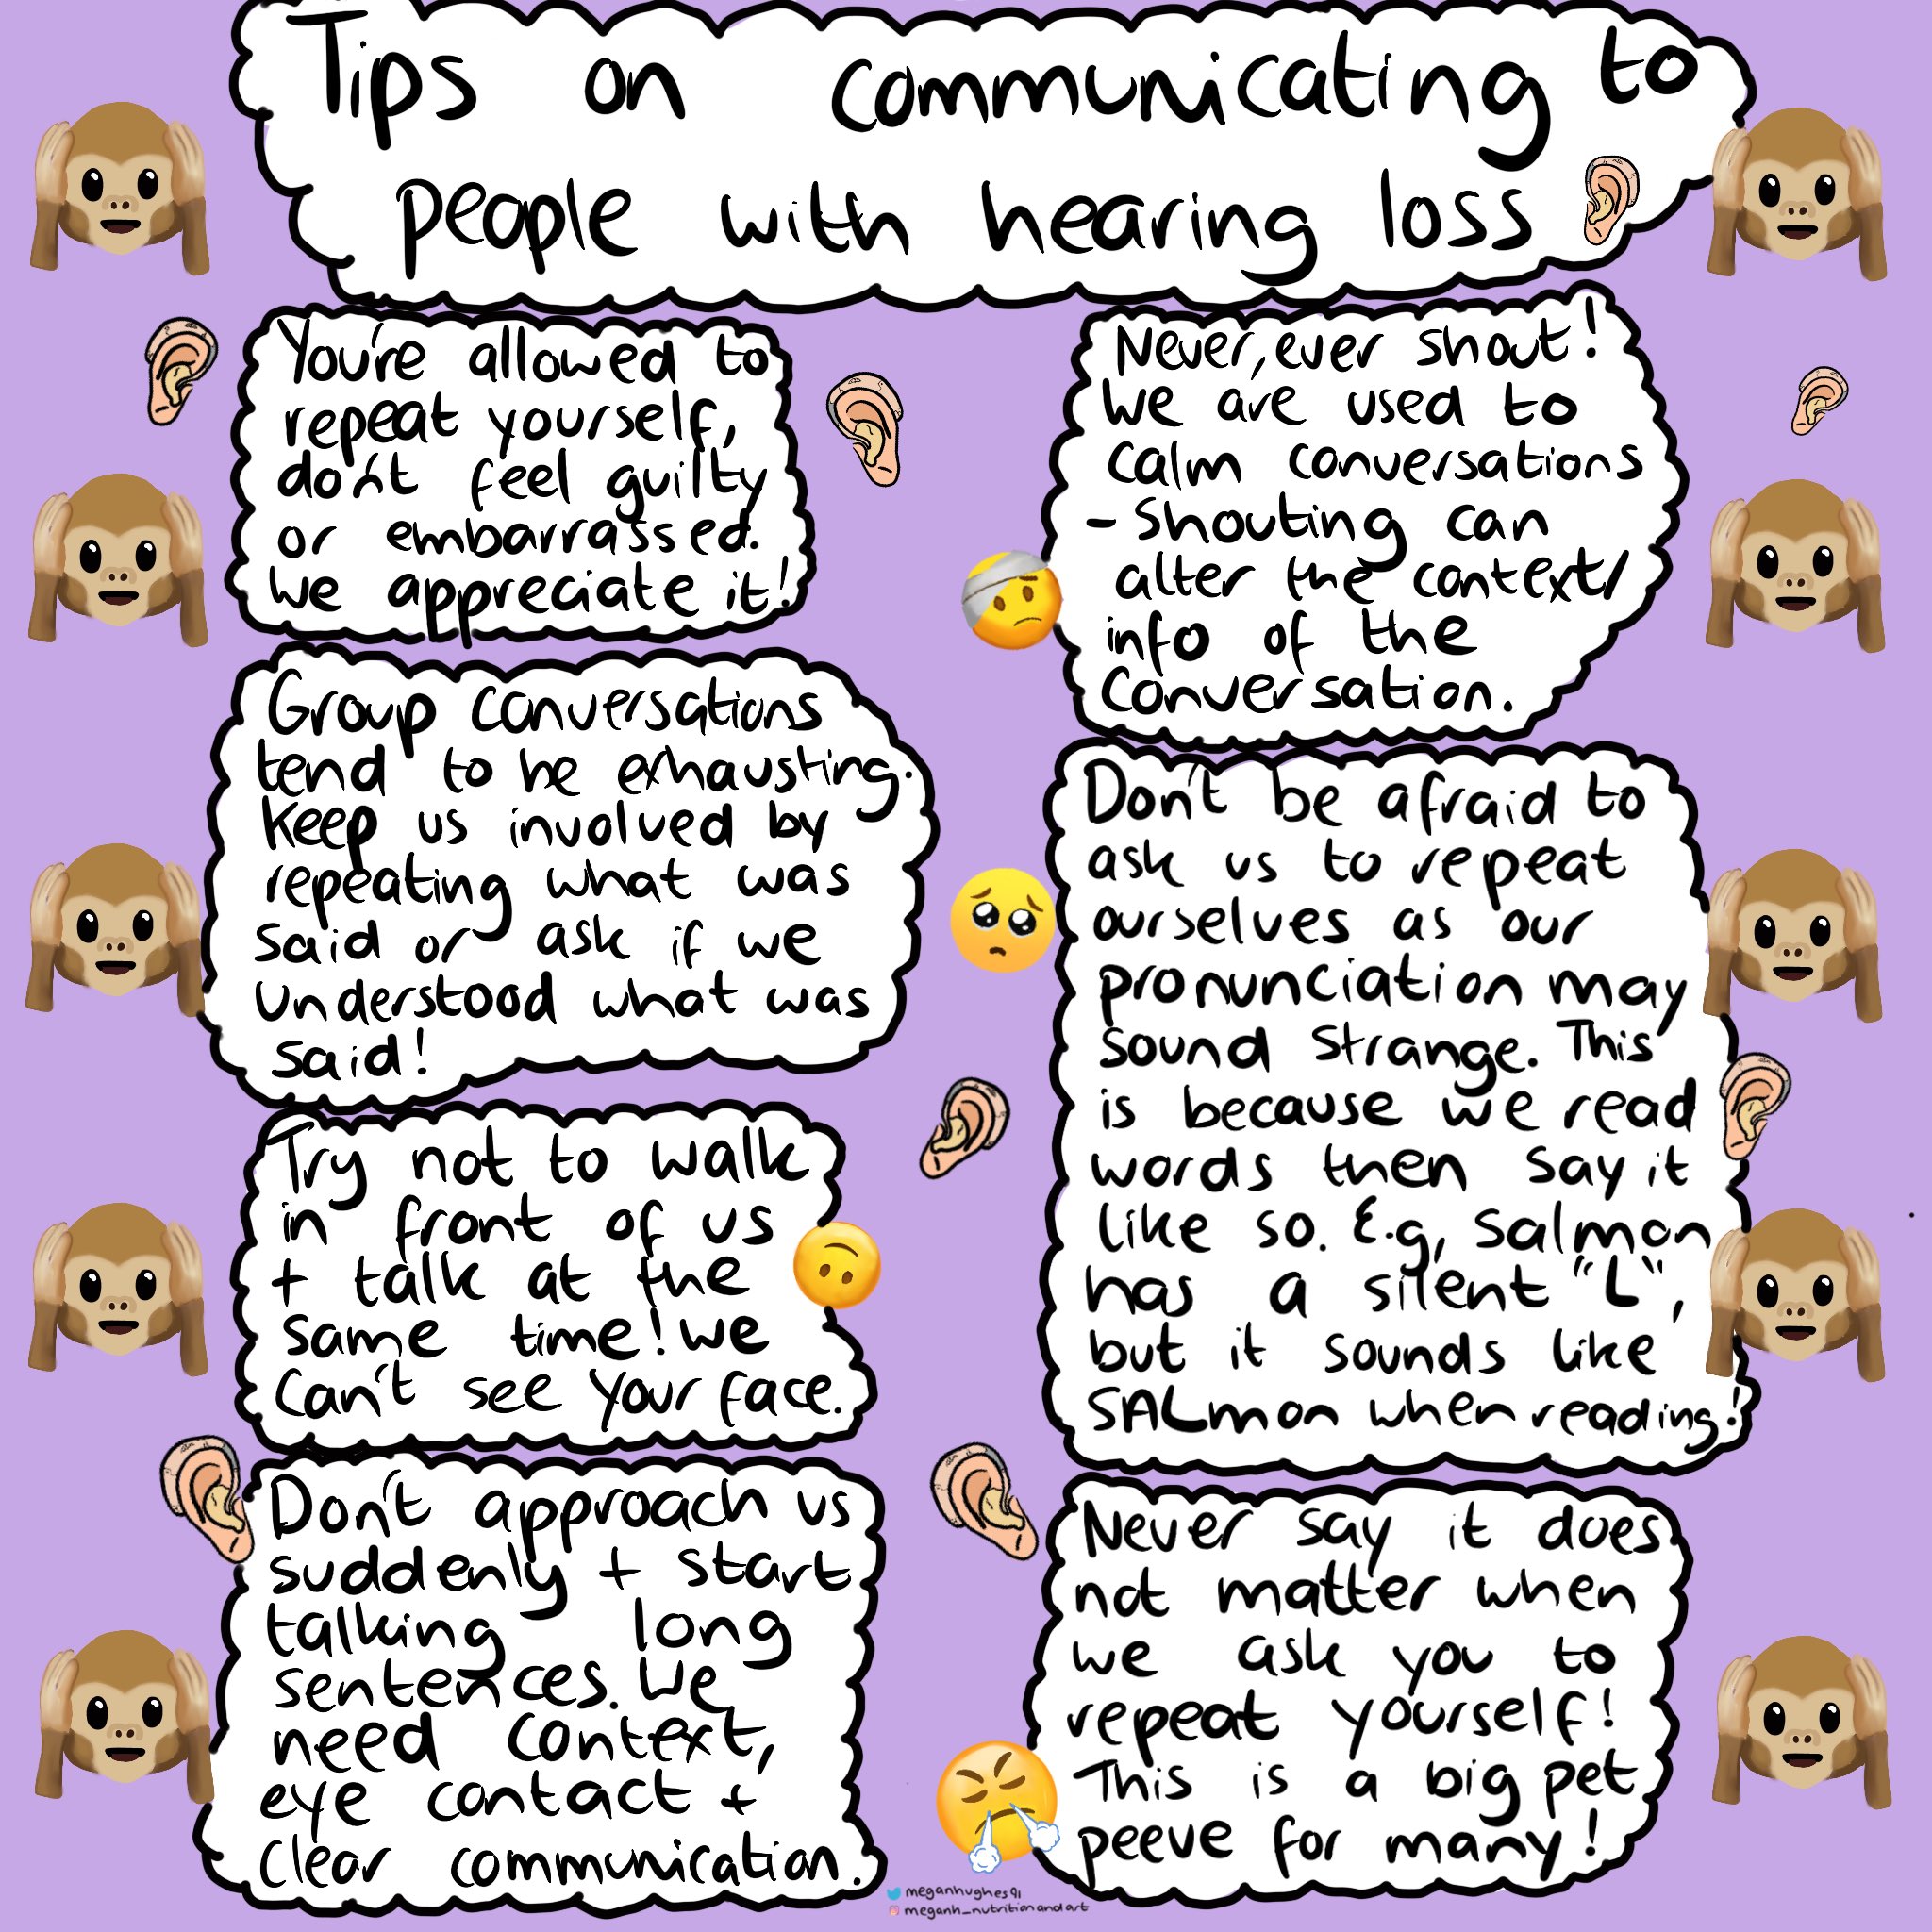 Tips on communicating to
people with hearing loss
You're allowed to
repeat yourself,
don't feel guilty
or embarrassed.
We appreciate it!
Group conversations
tend to be exhausting.
Keep us involved by
repeating what was
said or ask if we
understood what was
said!
Try not to walk
in front of us
+ talk at the
same time! We
Can't see your face.
Don't approach us
suddenly + start
talking long
sentences. We
need context,
eye contact +
clear communication.
Never, ever shout!
We are used to
calm conversations
- Shouting can
alter the context/
info of the
Conversation.
Don't be afraid to
ask us to repeat
ourselves as our
pronunciation may
sound strange. This
is because we read
words then say it
like so. E.g, salmon
has a silent "L",
but it sounds like
SALmon when reading!
Never say it does
not matter when
we ask you to
repeat yourself!
This is a big pet
peeve for many!
meganhughes91
meganh_nutritionandart